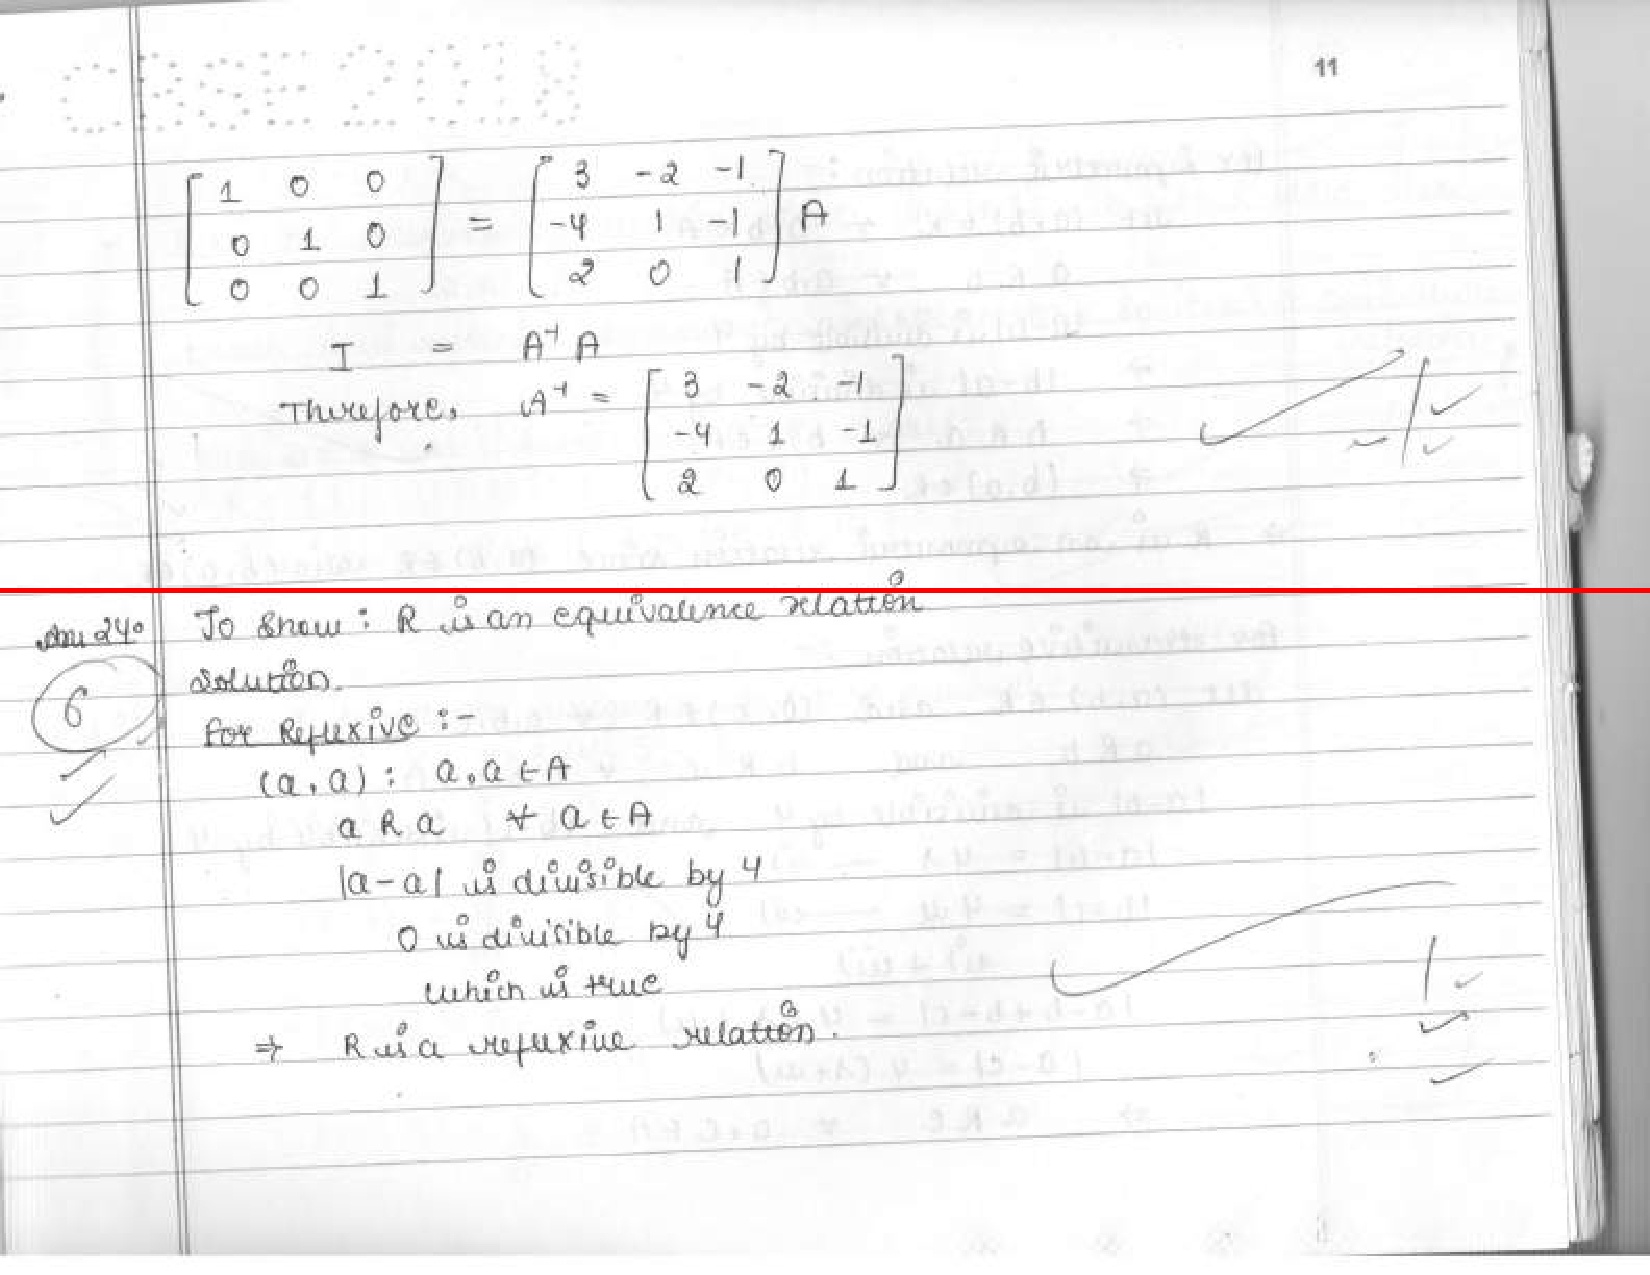 CBSE 2018
11
[ 1 0 0 ] = [ 3 -2 -1 ] A
[ 0 1 0 ] [ -4 1 -1 ]
[ 0 0 1 ] [ 2 0 1 ]
I = A⁻¹ A
Therefore, A⁻¹ = [ 3 -2 -1 ]
[ -4 1 -1 ]
[ 2 0 1 ]
24. To show : R is an equivalence relation
6
Solution.
For Reflexive :-
(a, a) : a, a ∈ A
a R a ∀ a ∈ A
|a-a| is divisible by 4
0 is divisible by 4
which is true
⇒ R is a reflexive relation.